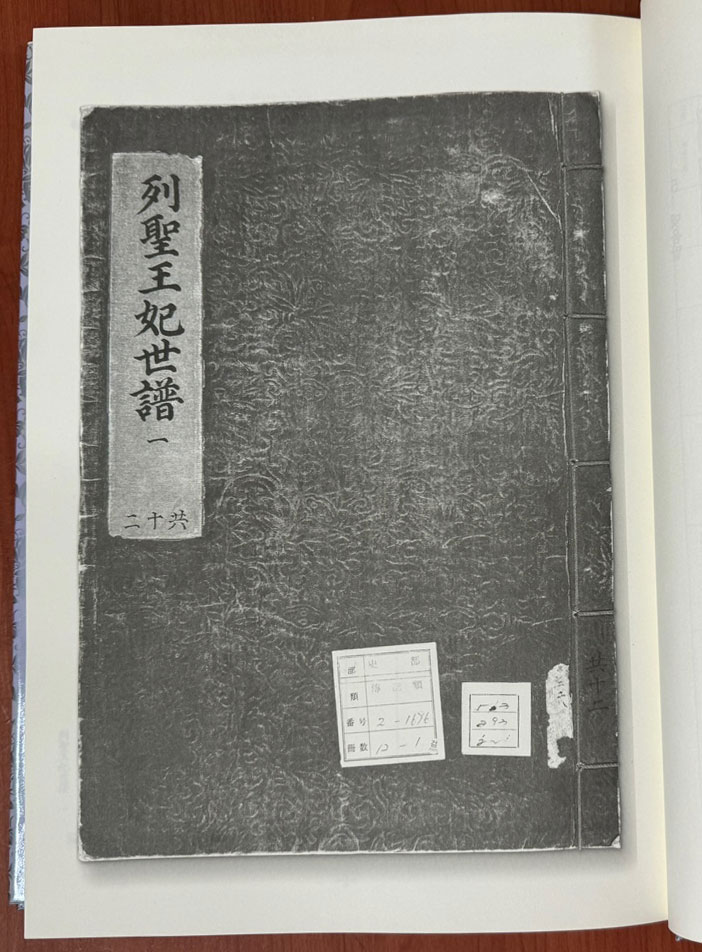 列聖王妃世譜 一
共十二
部 史 部
類 傳記類
番号 2-1696
冊数 12-1
共十二